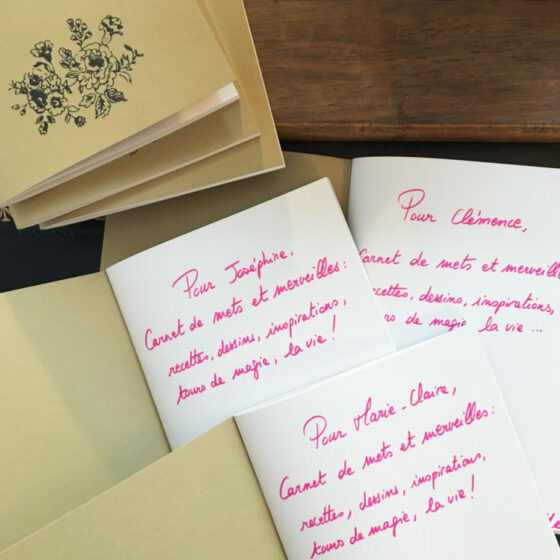 Pour Joséphine,
Carnet de mets et merveilles :
recettes, dessins, inspirations,
tours de magie, la vie !
Pour Clémence,
Carnet de mets et
recettes, dessins, inspirations,
tours de magie la vie ...
Pour Marie-Claire,
Carnet de mets et merveilles :
recettes, dessins, inspirations,
tours de magie, la vie !